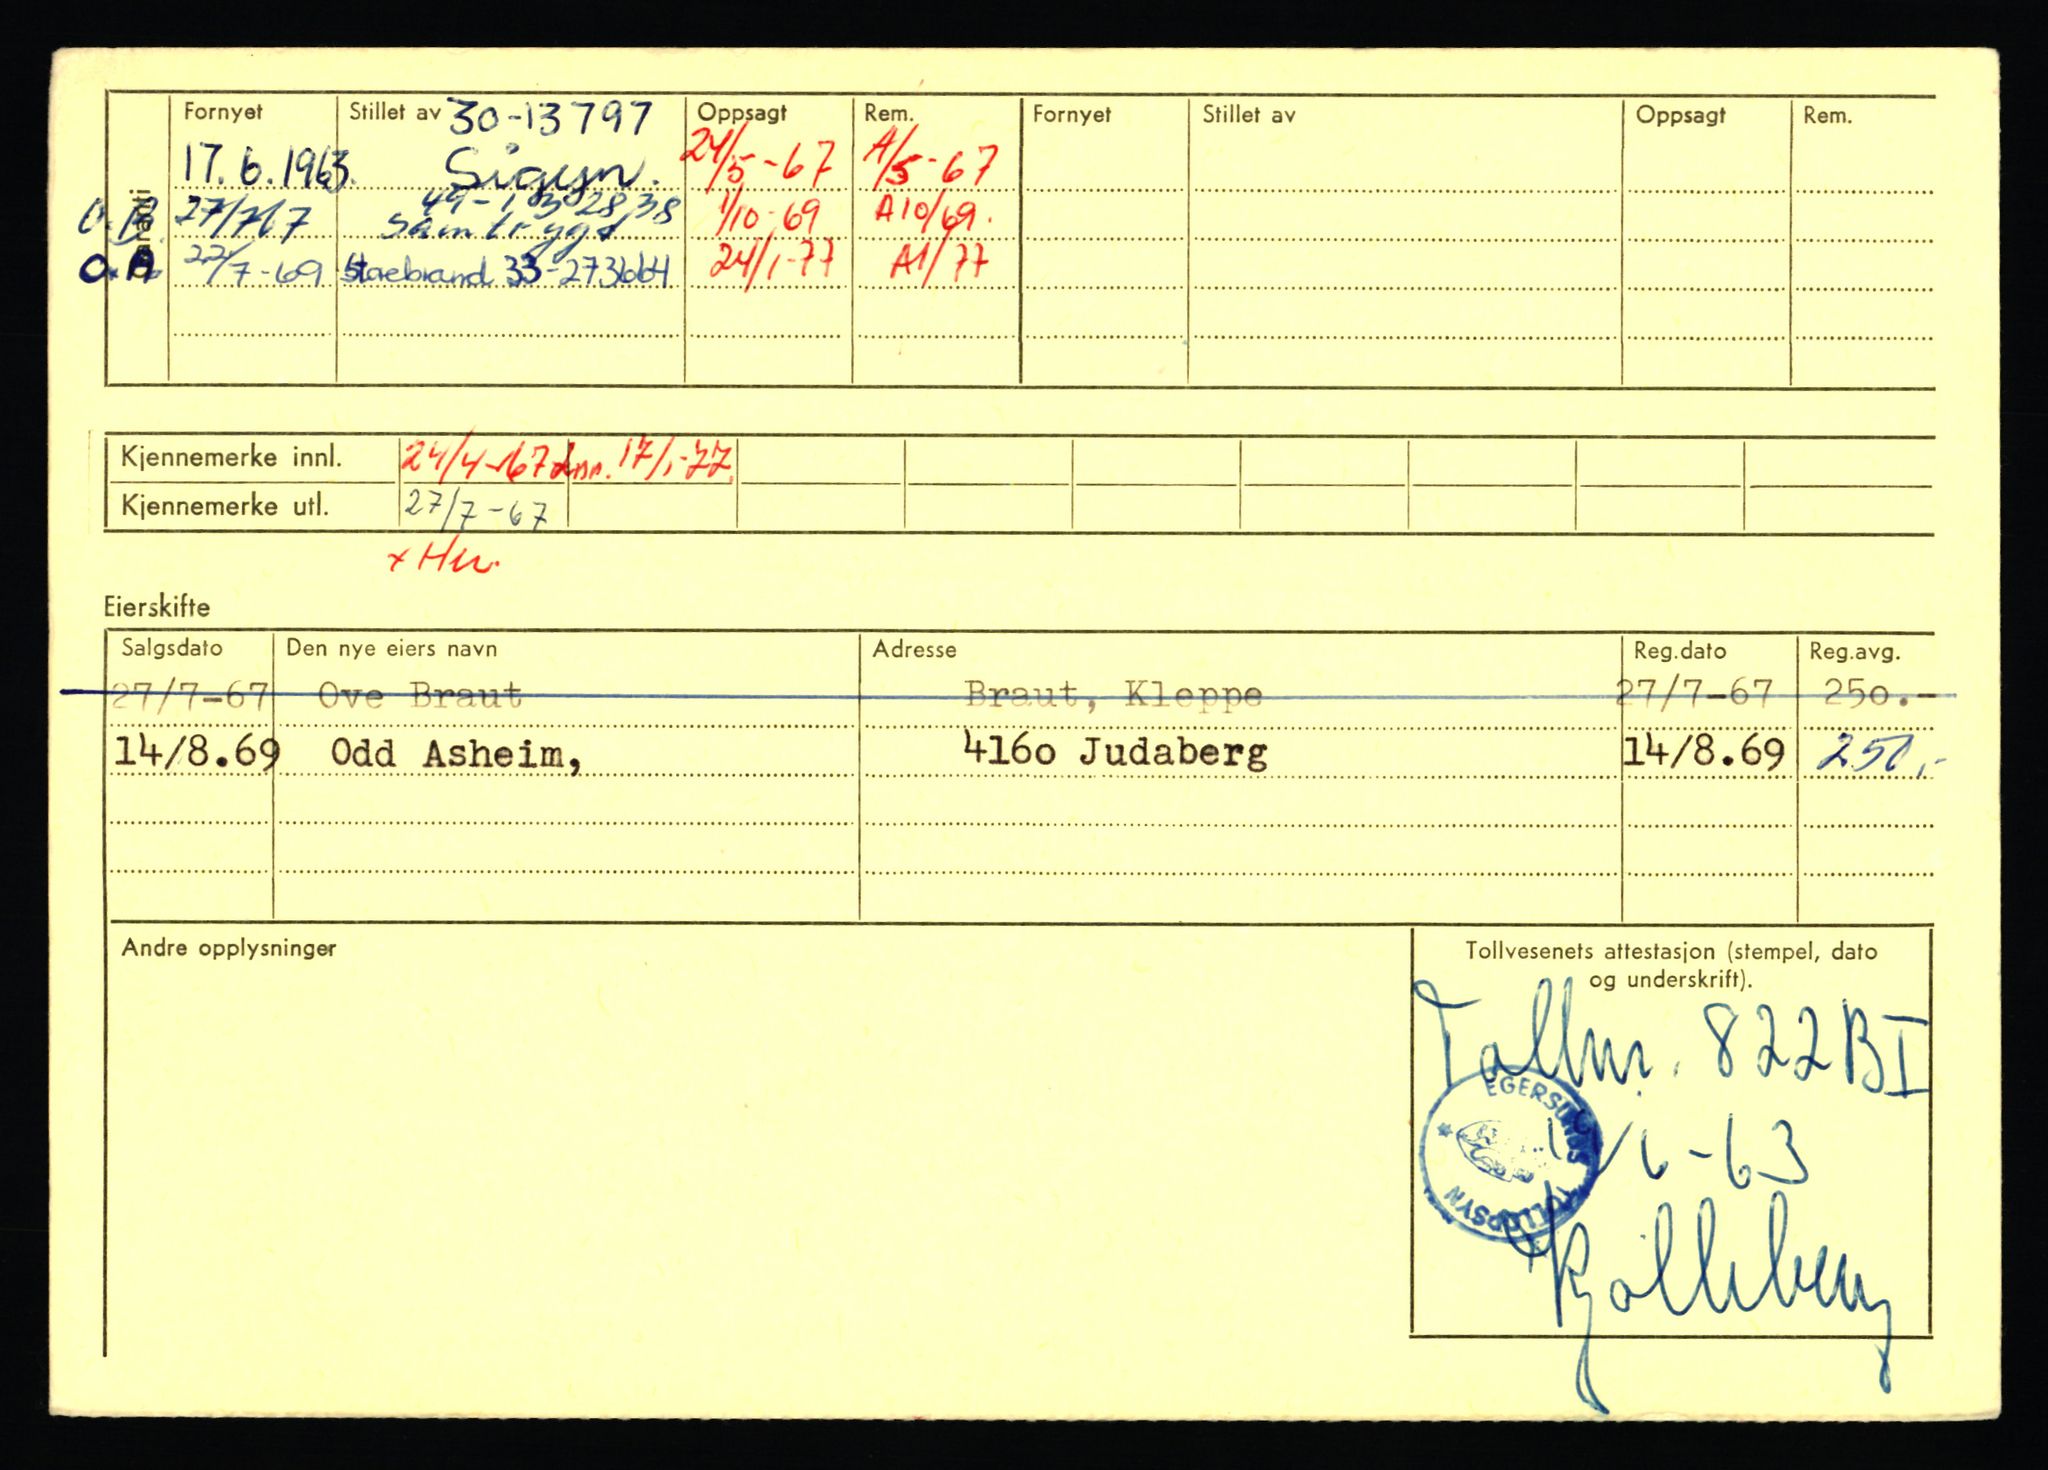 Fornyet Stillet av 30-13797 Oppsagt Rem. Fornyet Stillet av Oppsagt Rem.
17.6.1963. Sigyn. 24/5-67 A/5-67
27/7 67 49-132838 Samtrygd 1/10-69 A10/69.
O.A 22/7-69 Storebrand 33-273664 24/1-77 A1/77
Kjennemerke innl. 24/4-67 17/1-77.
Kjennemerke utl. 27/7-67
Eierskifte
Salgsdato Den nye eiers navn Adresse Reg.dato Reg.avg.
27/7-67 Ove Braut Braut, Kleppe 27/7-67 250.-
14/8.69 Odd Asheim, 416o Judaberg 14/8.69 250,-
Andre opplysninger
Tollvesenets attestasjon (stempel, dato
og underskrift).
Tollnr. 822 BI
EGERSUNDS TOLLOPPSYN
6-63